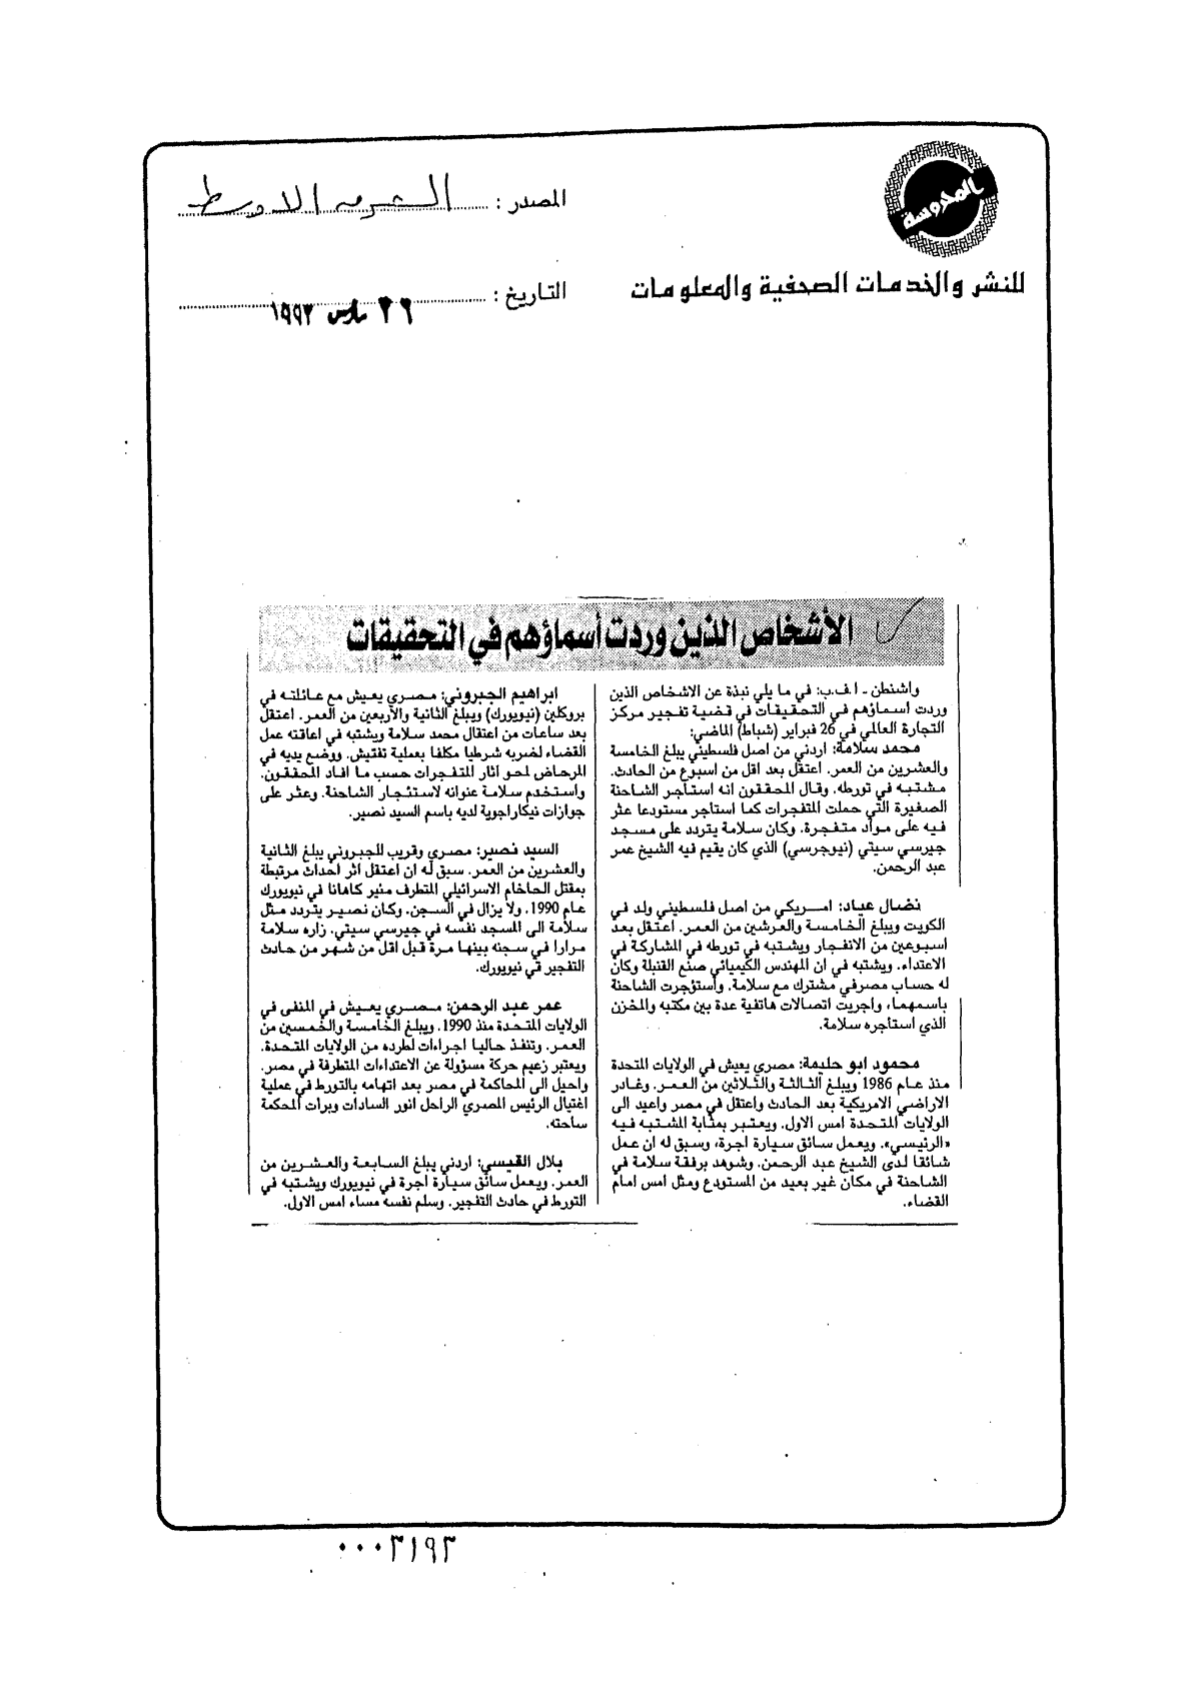 المحروسة
للنشر والخدمات الصحفية والمعلومات
المصدر : الشرق الاوسط
التاريخ : ٢٦ مارس ١٩٩٣
الأشخاص الذين وردت أسماؤهم في التحقيقات
واشنطن - ا.ف.ب: في ما يلي نبذة عن الاشخاص الذين
وردت اسماؤهم في التحقيقات في قضية تفجير مركز
التجارة العالمي في 26 فبراير (شباط) الماضي:
محمد سلامة: اردني من اصل فلسطيني يبلغ الخامسة
والعشرين من العمر. اعتقل بعد اقل من اسبوع من الحادث.
مشتبه في تورطه. وقال المحققون انه استاجر الشاحنة
الصغيرة التي حملت المتفجرات كما استاجر مستودعا عثر
فيه على مواد متفجرة. وكان سلامة يتردد على مسجد
جيرسي سيتي (نيوجرسي) الذي كان يقيم فيه الشيخ عمر
عبد الرحمن.
نضال عياد: امريكي من اصل فلسطيني ولد في
الكويت ويبلغ الخامسة والعرشين من العمر. اعتقل بعد
اسبوعين من الانفجار ويشتبه في تورطه في المشاركة في
الاعتداء. ويشتبه في ان المهندس الكيميائي صنع القنبلة وكان
له حساب مصرفي مشترك مع سلامة. واستؤجرت الشاحنة
باسمهما، واجريت اتصالات هاتفية عدة بين مكتبه والمخزن
الذي استاجره سلامة.
محمود ابو حليمة: مصري يعيش في الولايات المتحدة
منذ عام 1986 ويبلغ الثالثة والثلاثين من العمر. وغادر
الاراضي الامريكية بعد الحادث واعتقل في مصر واعيد الى
الولايات المتحدة امس الاول. ويعتبر بمثابة المشتبه فيه
«الرئيسي». ويعمل سائق سيارة اجرة، وسبق له ان عمل
شائقا لدى الشيخ عبد الرحمن. وشوهد برفقة سلامة في
الشاحنة في مكان غير بعيد من المستودع ومثل امس امام
القضاء.
ابراهيم الجبروني: مصري يعيش مع عائلته في
بروكلين (نيويورك) ويبلغ الثانية والاربعين من العمر. اعتقل
بعد ساعات من اعتقال محمد سلامة ويشتبه في اعاقته عمل
القضاء لضربه شرطيا مكلفا بعملية تفتيش. ووضع يديه في
المرحاض لمحو اثار المتفجرات حسب ما افاد المحققون.
واستخدم سلامة عنوانه لاستئجار الشاحنة. وعثر على
جوازات نيكاراجوية لديه باسم السيد نصير.
السيد نصير: مصري وقريب للجبروني يبلغ الثانية
والعشرين من العمر. سبق له ان اعتقل اثر احداث مرتبطة
بمقتل الحاخام الاسرائيلي المتطرف مئير كاهانا في نيويورك
عام 1990. ولا يزال في السجن. وكان نصير يتردد مثل
سلامة الى المسجد نفسه في جيرسي سيتي. زاره سلامة
مرارا في سجنه بينها مرة قبل اقل من شهر من حادث
التفجير في نيويورك.
عمر عبد الرحمن: مصري يعيش في المنفى في
الولايات المتحدة منذ 1990. ويبلغ الخامسة والخمسين من
العمر. وتنفذ حاليا اجراءات لطرده من الولايات المتحدة.
ويعتبر زعيم حركة مسؤولة عن الاعتداءات المتطرفة في مصر.
واحيل الى المحاكمة في مصر بعد اتهامه بالتورط في عملية
اغتيال الرئيس المصري الراحل انور السادات وبرات المحكمة
ساحته.
بلال القيسي: اردني يبلغ السابعة والعشرين من
العمر. ويعمل سائق سيارة اجرة في نيويورك ويشتبه في
التورط في حادث التفجير. وسلم نفسه مساء امس الاول.
٠٠٠٣١٩٣